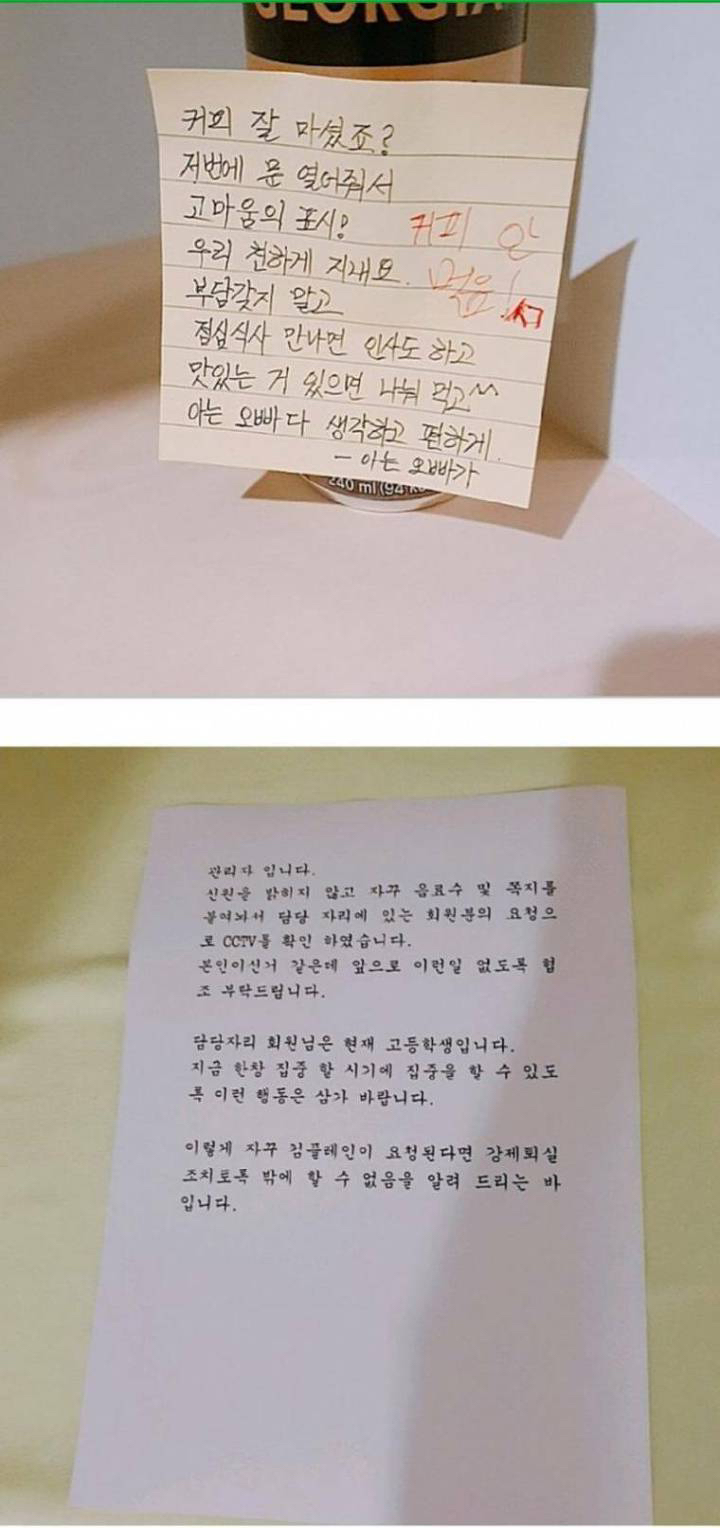 GEORGIA
커피 잘 마셨죠?
저번에 문 열어줘서
고마움의 표시!
커피 안
우리 친하게 지내요.
먹음!
부담갖지 말고
점심식사 만나면 인사도 하고
맛있는 거 있으면 나눠 먹고^^
아는 오빠다 생각하고 편하게.
- 아는 오빠가
240 ml (94 kc
관리자 입니다.
신원을 밝히지 않고 자꾸 음료수 및 쪽지를
붙여놔서 담당 자리에 있는 회원분의 요청으
로 CCTV를 확인 하였습니다.
본인이신거 같은데 앞으로 이런일 없도록 협
조 부탁드립니다.
담당자리 회원님은 현재 고등학생입니다.
지금 한창 집중 할 시기에 집중을 할 수 있도
록 이런 행동은 삼가 바랍니다.
이렇게 자꾸 컴플레인이 요청된다면 강제퇴실
조치토록 밖에 할 수 없음을 알려 드리는 바
입니다.